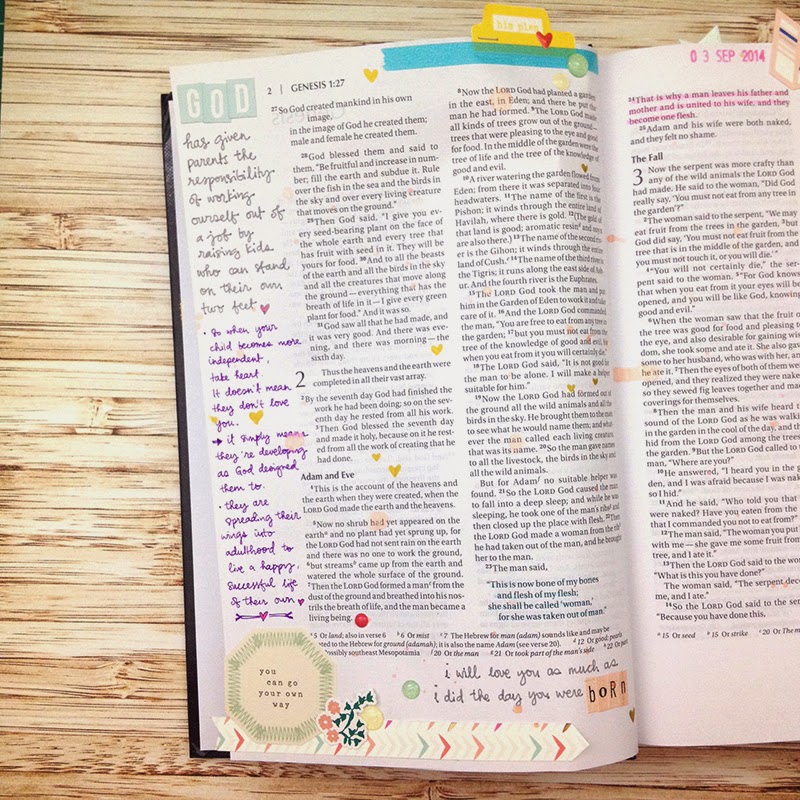 his plan
03 SEP 2014
GOD
has given
parents the
responsibility
of working
ourself out of
a job by
raising kids
who can stand
on their own
two feet
• So when your
child becomes more
independent,
take heart.
It doesn't mean
they don't love
you.
→ it simply means
they're developing
as God designed
them to.
• they are
spreading their
wings into
adulthood to
live a happy,
successful life
of their own
you
can go
your own
way
2 | GENESIS 1:27
27 So God created mankind in his own
image,
in the image of God he created them;
male and female he created them.
28 God blessed them and said to
them, "Be fruitful and increase in num-
ber; fill the earth and subdue it. Rule
over the fish in the sea and the birds in
the sky and over every living creature
that moves on the ground."
29 Then God said, "I give you ev-
ery seed-bearing plant on the face of
the whole earth and every tree that
has fruit with seed in it. They will be
yours for food. 30 And to all the beasts
of the earth and all the birds in the sky
and all the creatures that move along
the ground—everything that has the
breath of life in it—I give every green
plant for food." And it was so.
31 God saw all that he had made, and
it was very good. And there was eve-
ning, and there was morning—the
sixth day.
2 Thus the heavens and the earth were
completed in all their vast array.
2 By the seventh day God had finished the
work he had been doing; so on the sev-
enth day he rested from all his work.
3 Then God blessed the seventh day
and made it holy, because on it he rest-
ed from all the work of creating that he
had done.
Adam and Eve
4 This is the account of the heavens and
the earth when they were created, when the
LORD God made the earth and the heavens.
5 Now no shrub had yet appeared on the
earth a and no plant had yet sprung up, for
the LORD God had not sent rain on the earth
and there was no one to work the ground,
6 but streams b came up from the earth and
watered the whole surface of the ground.
7 Then the LORD God formed a man c from the
dust of the ground and breathed into his nos-
trils the breath of life, and the man became a
living being.
8 Now the LORD God had planted a garden
in the east, in Eden; and there he put the
man he had formed. 9 The LORD God made
all kinds of trees grow out of the ground—
trees that were pleasing to the eye and good
for food. In the middle of the garden were the
tree of life and the tree of the knowledge of
good and evil.
10 A river watering the garden flowed from
Eden; from there it was separated into four
headwaters. 11 The name of the first is the
Pishon; it winds through the entire land of
Havilah, where there is gold. 12 (The gold of
that land is good; aromatic resin d and onyx
are also there.) 13 The name of the second riv-
er is the Gihon; it winds through the entire
land of Cush. e 14 The name of the third river is
the Tigris; it runs along the east side of Ashur.
And the fourth river is the Euphrates.
15 The LORD God took the man and put
him in the Garden of Eden to work it and take
care of it. 16 And the LORD God commanded
the man, "You are free to eat from any tree in
the garden; 17 but you must not eat from the
tree of the knowledge of good and evil, for
when you eat from it you will certainly die."
18 The LORD God said, "It is not good for
the man to be alone. I will make a helper
suitable for him."
19 Now the LORD God had formed out of
the ground all the wild animals and all the
birds in the sky. He brought them to the man
to see what he would name them; and what-
ever the man called each living creature,
that was its name. 20 So the man gave names
to all the livestock, the birds in the sky and
all the wild animals.
But for Adam f no suitable helper was
found. 21 So the LORD God caused the man
to fall into a deep sleep; and while he was
sleeping, he took one of the man's ribs g and
then closed up the place with flesh. 22 Then
the LORD God made a woman from the rib h
he had taken out of the man, and he brought
her to the man.
23 The man said,
"This is now bone of my bones
and flesh of my flesh;
she shall be called 'woman,'
for she was taken out of man."
a 5 Or land; also in verse 6 b 6 Or mist c 7 The Hebrew for man (adam) sounds like and may be
related to the Hebrew for ground (adamah); it is also the name Adam (see verse 20). d 12 Or good; pearls
Possibly southeast Mesopotamia f 20 Or the man g 21 Or took part of the man's side h 22 Or part
i will love you as much as
i did the day you were boRn
24 That is why a man leaves his father and
mother and is united to his wife, and they
become one flesh.
25 Adam and his wife were both naked,
and they felt no shame.
The Fall
3 Now the serpent was more crafty than
any of the wild animals the LORD God
had made. He said to the woman, "Did God
really say, 'You must not eat from any tree in
the garden'?"
2 The woman said to the serpent, "We may
eat fruit from the trees in the garden, 3 but
God did say, 'You must not eat fruit from the
tree that is in the middle of the garden, and
you must not touch it, or you will die.'"
4 "You will not certainly die," the ser-
pent said to the woman. 5 "For God knows
that when you eat from it your eyes will be
opened, and you will be like God, knowing
good and evil."
6 When the woman saw that the fruit of
the tree was good for food and pleasing to
the eye, and also desirable for gaining wis-
dom, she took some and ate it. She also gave
some to her husband, who was with her, and
he ate it. 7 Then the eyes of both of them were
opened, and they realized they were naked;
so they sewed fig leaves together and made
coverings for themselves.
8 Then the man and his wife heard the
sound of the LORD God as he was walking
in the garden in the cool of the day, and they
hid from the LORD God among the trees
of the garden. 9 But the LORD God called to
man, "Where are you?"
10 He answered, "I heard you in the gar-
den, and I was afraid because I was naked;
so I hid."
11 And he said, "Who told you that you
were naked? Have you eaten from the
that I commanded you not to eat from?"
12 The man said, "The woman you put
with me—she gave me some fruit from
tree, and I ate it."
13 Then the LORD God said to the wo
"What is this you have done?"
The woman said, "The serpent dece
me, and I ate."
14 So the LORD God said to the se
"Because you have done this,
a 15 Or seed b 15 Or strike c 20 Or The m